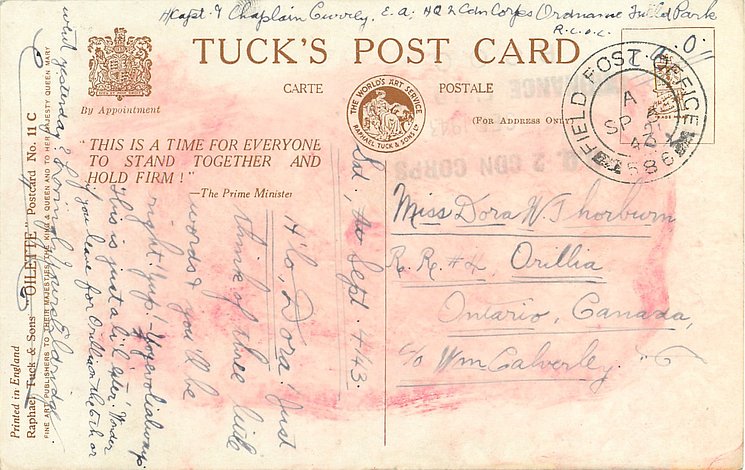 H/Capt. & Chaplain E.A; HQ 2 Cdn Corps Ordnance Field Park
R.C.O.C.
TUCK'S POST CARD
CARTE POSTALE
By Appointment
THE WORLD'S ART SERVICE
RAPHAEL TUCK & SONS LTD
(FOR ADDRESS ONLY)
FIELD POST OFFICE
A
SP
43
586
2 CDN CORPS
"THIS IS A TIME FOR EVERYONE
TO STAND TOGETHER AND
HOLD FIRM!"
—The Prime Minister
Sept. 4/43.
H'lo, Dora! Just
think of three little
words & you'll be
right! Yup!
This is just a li'l
if you leave for Orillia the 6th or
what yesterday?
Miss Dora W. Thorburn
R.R. #4, Orillia
Ontario, Canada,
c/o Wm Calverley.
Printed in England
Raphael Tuck & Sons "OILETTE" Postcard No. 11 C
FINE ART PUBLISHERS TO THEIR MAJESTIES THE KING & QUEEN AND TO HER MAJESTY QUEEN MARY